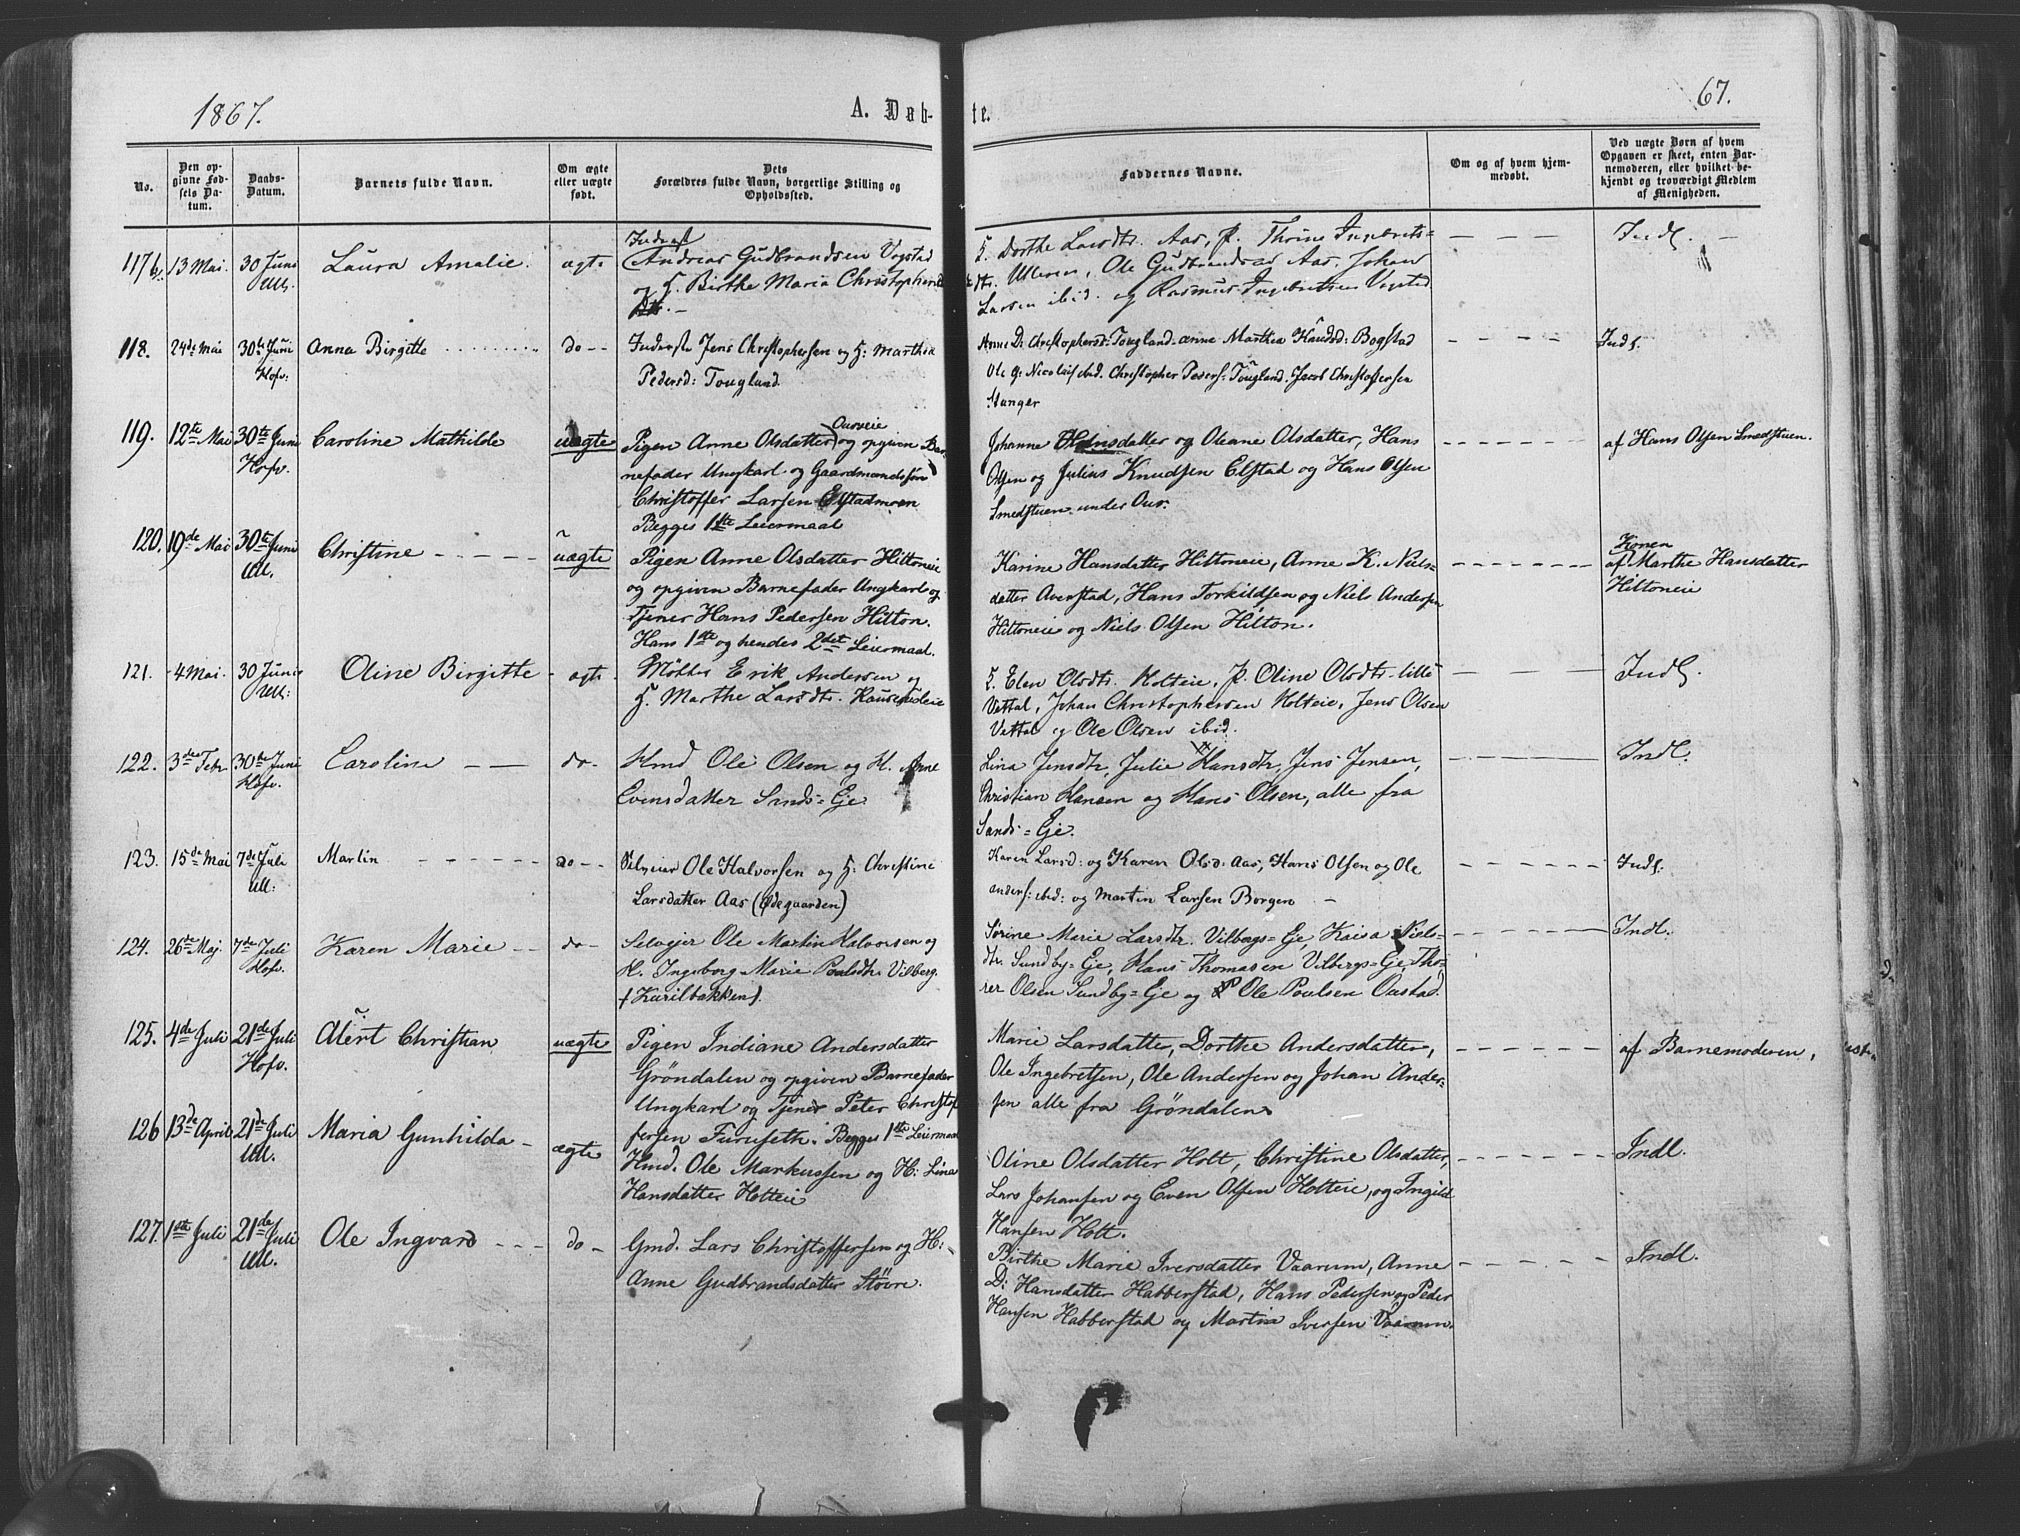 1867.
A. Døb-
te.
67.
No.
Den op-
givne Fød-
sels Da-
tum.
Daabs-
Datum.
Barnets fulde Navn.
Om ægte
eller uægte
født.
Dets
Forældres fulde Navn, borgerlige Stilling og
Opholdssted.
Faddernes Navne.
Om og af hvem hjem-
medøbt.
Ved uægte Børn af hvem
Opgaven er skeet, enten Bar-
nemoderen, eller hvilket be-
kjendt og troværdigt Medlem
af Menigheden.
13 Mai. 30 Juni
Ull.
Laura Amalie.
ægte
Inderst
Andreas Gudbrandsen Vogstad
og H. Birthe Maria Christophers
Dtr. -
K. Dorthe Larsdtr. Aas, p. Thrine Ingebrets=
dtr. Ulleren, Ole Gudbrandsen Aas, Johan
Larsen ibid. og Rasmus Ingebretsen Vogstad
Indl.
118. 24de Mai 30te Juni
Hofv:
Anna Birgitte
do
Inderst Jens Christophersen og H: Marthia
Pedersd: Tougland
Anne D. Christophersd: Tougland. Anne Marthea Knudsd: Bogstad
Ole G: Nicolais ibd. Christopher Peders: Tougland. Jacob Christoffersen
Stanger
Indl.
119. 12te Mai 30te Juni
Hofv.
Caroline Mathilde
uægte
Pigen Anne Olsdatter Ourveie og opgiven Bar-
nefader Ungkarl og Gaardmandssøn
Christoffer Larsen Elstadmoen
Begges 1ste Leiermaal
Johanne Hansdatter og Oleane Olsdatter, Hans
Olsen og Julius Knudsen Elstad og Hans Olsen
Smedstuen under Our.
af Hans Olsen Smedstuen.
120. 19de Mai 30te Juni
Ull.
Christine
uægte
Pigen Anne Olsdatter Hiltoneie
og opgiven Barnefader Ungkarl og
Tjener Hans Pedersen Hilton.
Hans 1ste og hendes 2det Leiermaal.
Karine Hansdatter Hiltoneie, Anne K. Niels=
datter Averstad, Hans Torkildsen og Niels Andersen
Hiltoneie og Niels Olsen Hilton.
Konen
af Marthe Hansdatter
Hiltoneie
121. 4 Mai. 30 Juni
Ull:
Oline Birgitte
ægte
Møller Erik Andersen og
H. Marthe Larsdtr.
K. Elen Olsdtr. Holteie, p. Oline Olsdtr. lille
Vettal, Johan Christophersen Holteie, Jens Olsen
Vettal og Ole Olsen ibid.
Indl.
122. 3die Febr 30te Juni
Hofv.
Caroline
do.
Hmd Ole Olsen og H. Anne
Evensdatter Sands=Eje
Lina Jensdtr, Julie Hansdtr, Jens Jensen,
Christian Hansen og Hans Olsen, alle fra
Sands=Eje.
Indl.
123. 15de Mai 7de Juli
Ull:
Martin
do
Selveier Ole Halvorsen og H: Christine
Larsdatter Aas (Ødegaarden)
Karen Larsd: og Karen Olsd: Aas, Hans Olsen og Ole
Anders: ibid: og Martin Larsen Borgen
Indl:
124. 26de Maj. 7de Juli
Hofv.
Karen Marie
do
Selvejer Ole Martin Halvorsen og
H. Ingeborg Marie Poulsdtr. Vilberg.
(Kurilbakken).
Sorine Marie Larsdtr. Vilbergs=Eje, Kaisa Niels=
dtr. Sundby=Eje, Hans Thomasen Vilbergs=Eje, Tho=
rer Olsen Sundby=Eje og Ole Poulsen Oustad.
Indl.
125. 4de Juli 21de Juli
Hofv.
Alert Christian
uægte
Pigen Indiane Andersdatter
Grøndalen og opgiven Barnefader
Ungkarl og Tjener Peter Christof
fersen Furuseth. Begges 1ste Leiermaal
Marie Larsdatter, Dorthe Andersdatter,
Ole Ingebretsen, Ole Andersen og Johan Ander=
sen alle fra Grøndalen
af Barnemoderen,
126 13de April 21de Juli
Ull.
Maria Gunhilda
ægte
Hmd. Ole Markussen og H: Lina
Hansdatter Holteie
Oline Olsdatter Holt, Christine Olsdatter,
Lars Johansen og Even Olsen Holteie, og Ingild
Hansen Holt.
Indl.
127. 1ste Juli 21de Juli
Ull.
Ole Ingvard
do
Gmd. Lars Christoffersen og H:
Anne Gudbrandsdatter Støvre.
Birthe Marie Iversdatter Vaarum, Anne
D: Hansdatter Habberstad, Hans Pedersen og Peder
Hansen Habberstad og Martin Iversen Vaarum.
Indl.